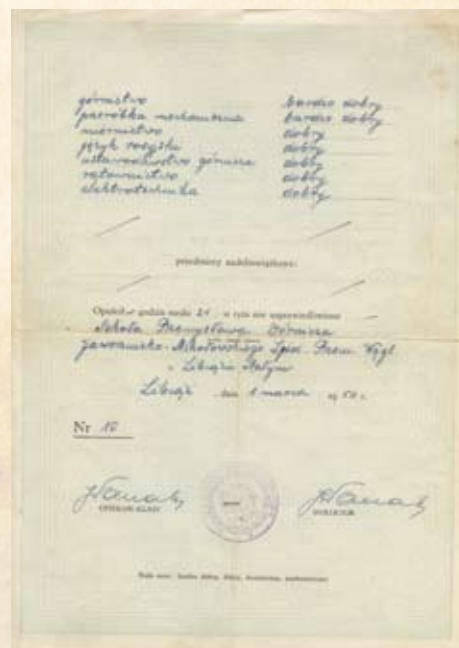 górnictwo bardzo dobry
przeróbka mechaniczna bardzo dobry
miernictwo dobry
język rosyjski dobry
ustawodawstwo górnicze dobry
ratownictwo dobry
elektrotechnika dobry
przedmioty nadobowiązkowe:
Opuścił godzin nauki 21 w tym nie usprawiedliwiono
Szkoła Przemysłowa Górnicza
Jaworznicko-Mikołowskiego Zjedn. Przem. Węgl.
w Libiążu Małym
Libiąż dnia 1 marca 1950 r.
Nr 10
OPIEKUN KLASY DYREKTOR
Skala ocen: bardzo dobry, dobry, dostateczny, niedostateczny